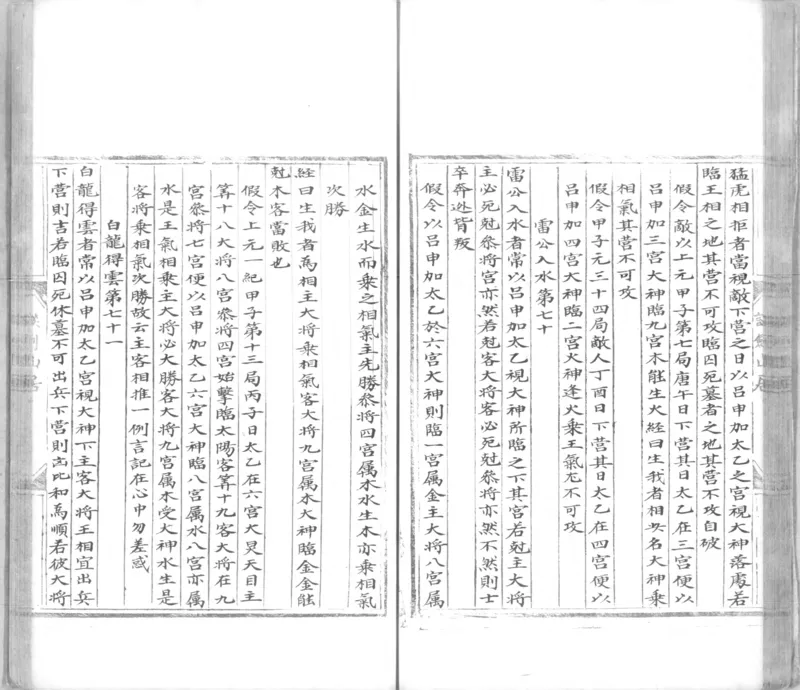 猛虎相拒者當視敵下營之日以吕申加太乙之宫視大神落處若
臨王相之地其營不可攻臨囚死墓者之地其營不攻自破
假令敵以上元甲子第七局庚午日下營其日太乙在三宫便以
吕申加三宫大神臨九宫木能生火經曰生我者相火名大神乗
相氣其營不可攻
假令甲子元三十四局敵人丁酉日下營其日太乙在四宫便以
吕申加四宫大神臨二宫火神逢火乗王氣尤不可攻
雷公入水第七十
雷公入水者常以吕申加太乙視大神所臨之下其宫若尅主大將
主必死尅叅將宫亦然若尅客大將客必死尅叅將亦然不然則士
卒奔迯皆叛
假令以吕申加太乙於六宫大神則臨一宫属金主大將八宫属
水金生水而乗之相氣主先勝叅將四宫属木水生木亦乗相氣
次勝
經曰生我者為相主大將乗相氣客大將九宫属木大神臨金金能
尅木客當敗也
假令上元一紀甲子第十三局丙子日太乙在六宫大炅天目主
筭十八大將八宫叅將四宫始擊臨太陽客筭十九客大將在九
宫叅將七宫便以吕申加太乙六宫大神臨八宫属水八宫亦属
水是王氣相乗主大將必大勝客大將九宫属木受大神水生是
客將乗相氣次勝故云主客相推一例言記在心中勿差惑
白龍得雲第七十一
白龍得雲者常以吕申加太乙宫視大神下主客大將王相宜出兵
下營則吉若臨囚死休墓不可出兵下營則凶比和為順若彼大將